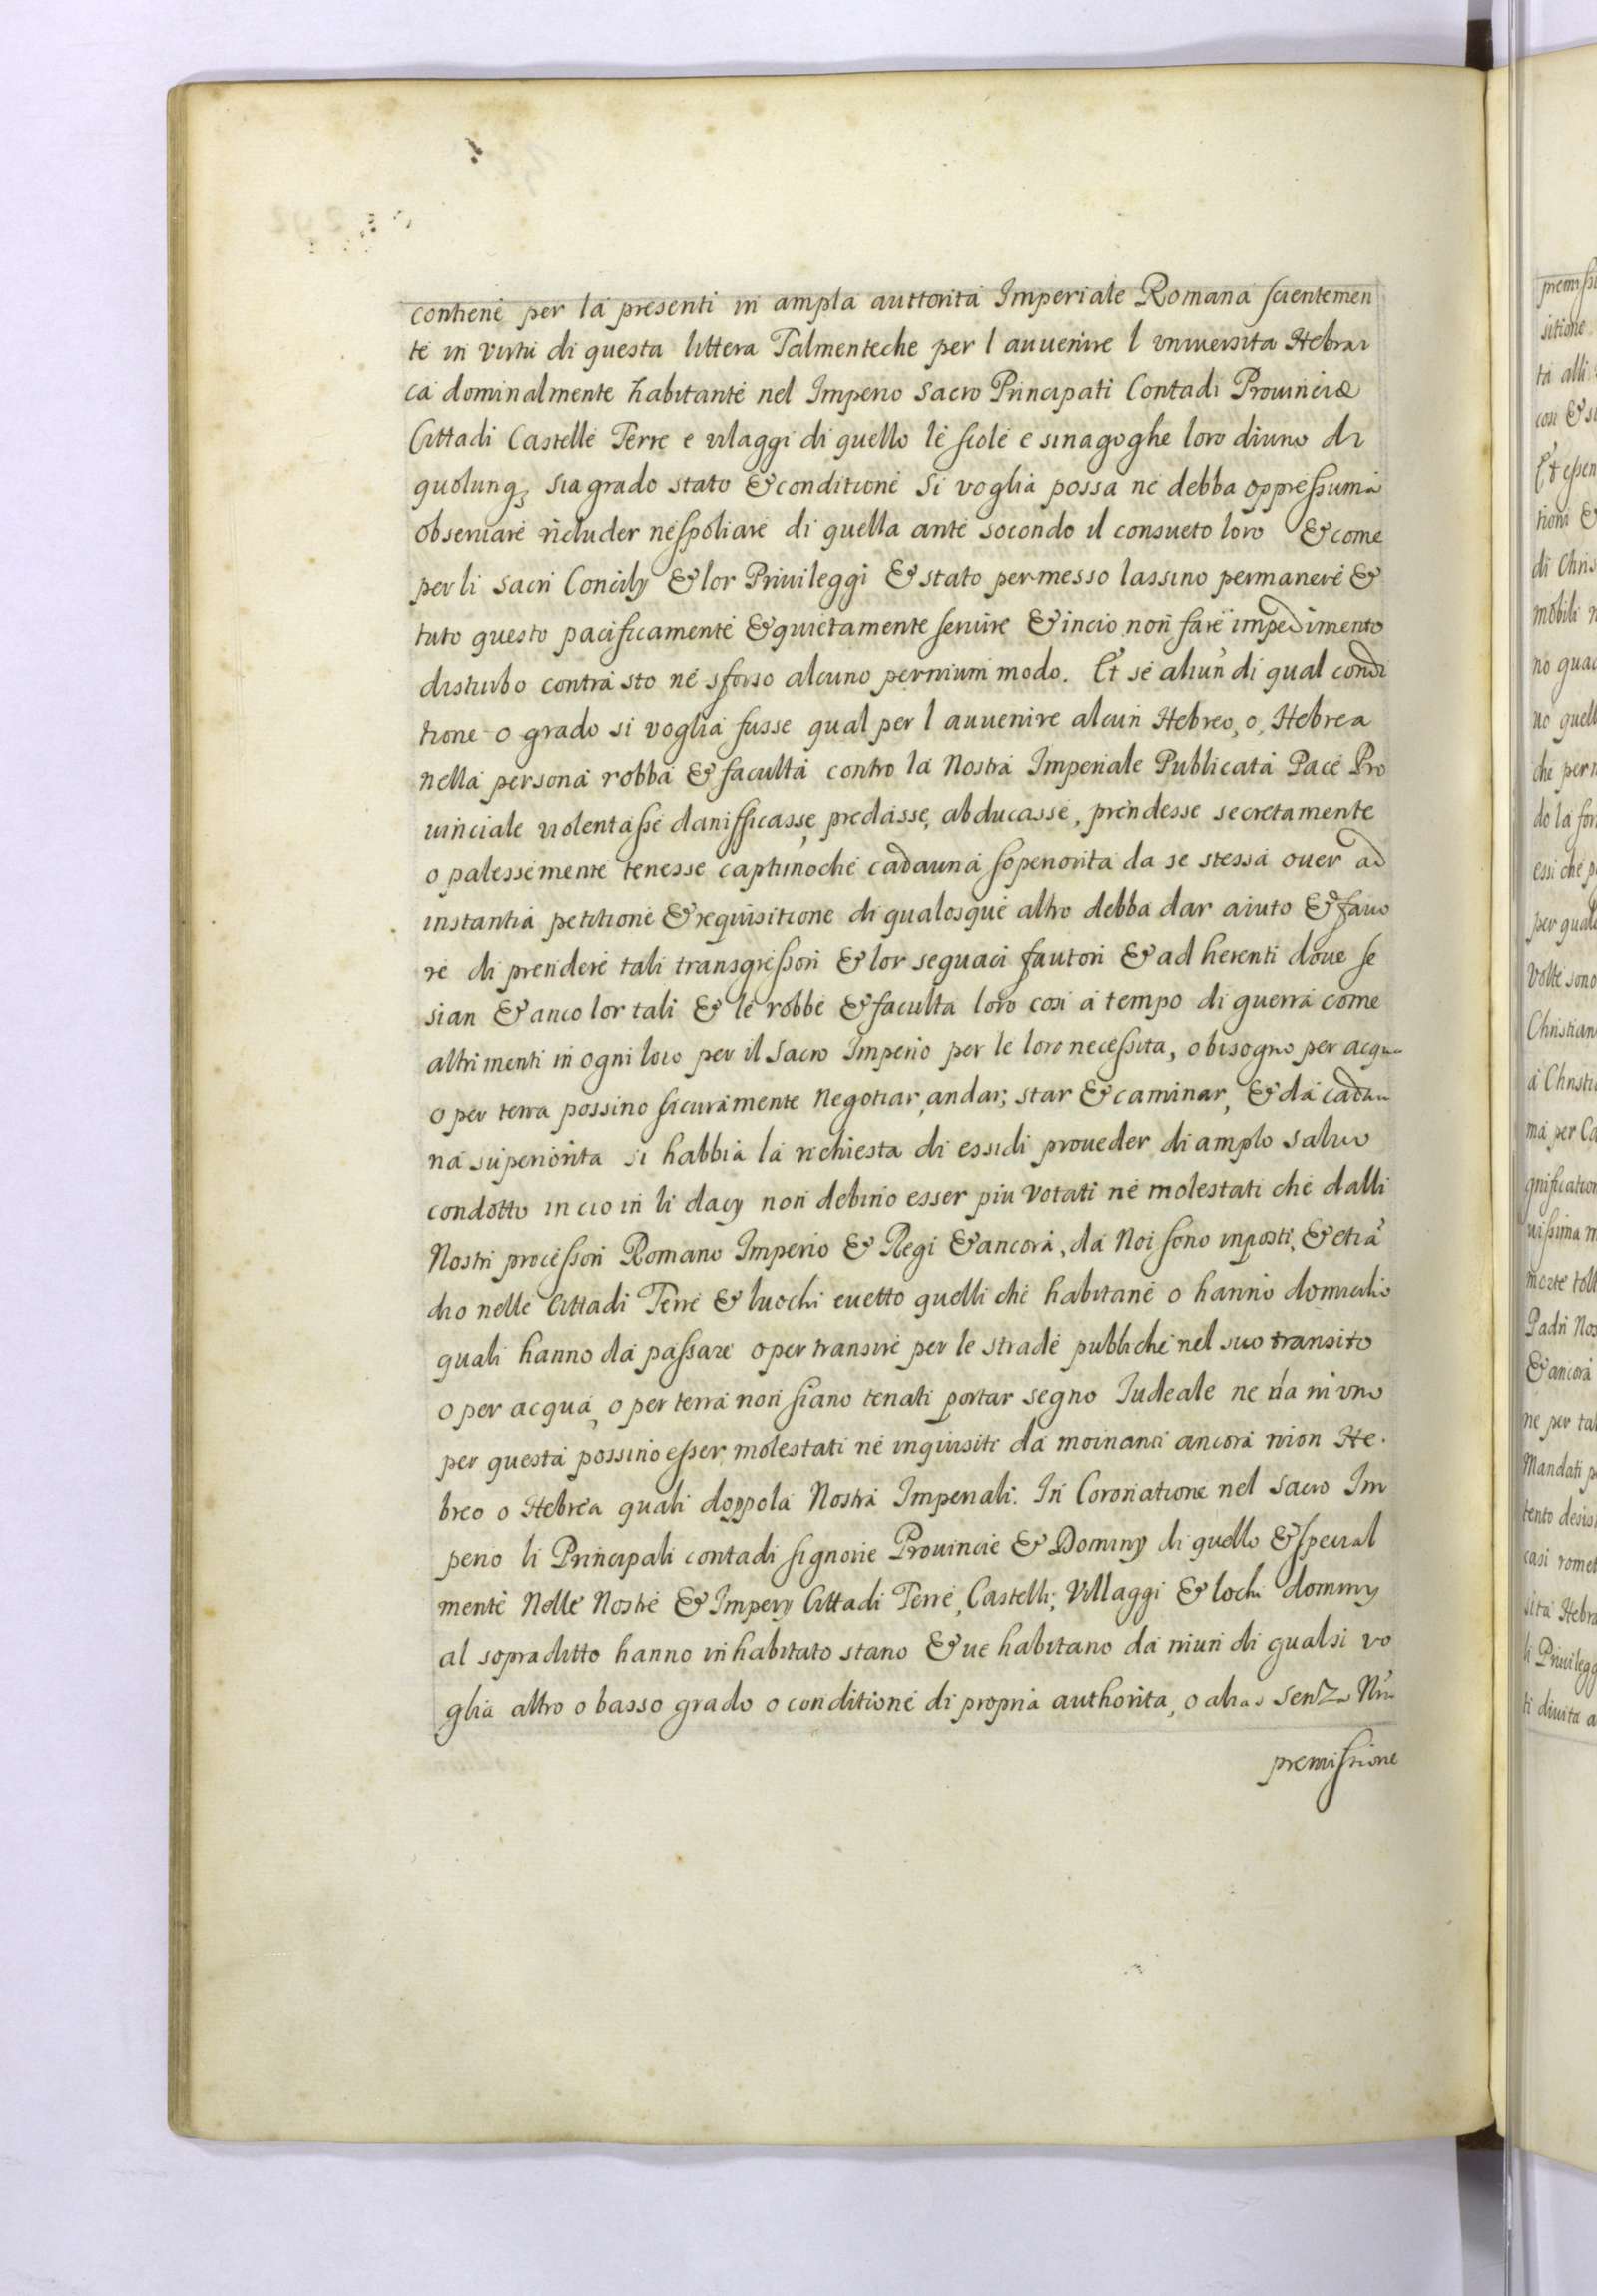 contiene per la presenti in ampla auttorita Imperiale Romana scientemen
te in virtu di questa littera Talmenteche per l auuenire l vniuersita Hebrai
ca dominalmente habitante nel Imperio Sacro Principati Contadi Prouincie
Cittadi Castelle Terre e vilaggi di quello le scole e sinagoghe loro diuno di
qualunq3 sia grado stato & conditione si voglia possa ne debba oppressuma
obseruare ricluder nespoliare di quella ante socondo il consueto loro & come
per li sacri Concily & lor Priuileggi & stato permesso lassino permanere &
tuto questo pacificamente & quietamente seruire & incio non fare impedimento
disturbo contra sto ne sforso alcuno perniun modo. Et se aliun di qual condi
tione o grado si voglia fusse qual per l auuenire alcun Hebreo, o, Hebrea
nella persona robba & faculta contro la Nostra Imperiale Publicata Pace Pro
uinciale violentasse danifficasse, predasse, abducasse, prendesse secretamente
o palessemente tenesse captiuoche cadauna sopenorita da se stessa ouer ad
instantia petitione & requisitione di qualosque altro debba dar aiuto & fauo
re di prendere tali transgressori & lor seguaci fautori & ad herenti doue se
sian & anco lor tali & le robbe & faculta loro cosi a tempo di guerra come
altrimenti in ogni loco per il Sacro Imperio per le loro necessita, o bisogno per acqua
o per terra possino sicuramente negotiar, andar, star & caminar, & da cadau
na superiorita si habbia la richiesta di essidi proueder di amplo saluo
condotto in cio in li dacy non debino esser piu votati ne molestati che dalli
Nostri processori Romano Imperio & Regi & ancora, da Noi sono inposti, & etia
dio nelle Cittadi Terre & luochi euetto quelli che habitane o hanno domicilio
quali hanno da passare o per transire per le strade pubbliche nel suo transito
o per acqua, o per terra non siano tenati portar segno Iudeale ne da ni uno
per questa possino esser molestati ne inquisiti da moinanci ancora nion He.
breo o Hebrea quali doppola Nostra Imperiali. In Coronatione nel sacro Im
perio li Principali contadi signorie Prouincie & Dominy di quello & special
mente Nelle Nostre & Impery Cittadi Terre, Castelli, Villaggi & lochi dominy
al sopraditto hanno inhabitato stano & ue habitano da niun di qualsi vo
glia altro o basso grado o conditione di propria authorita, o alias senza Nra
premissione